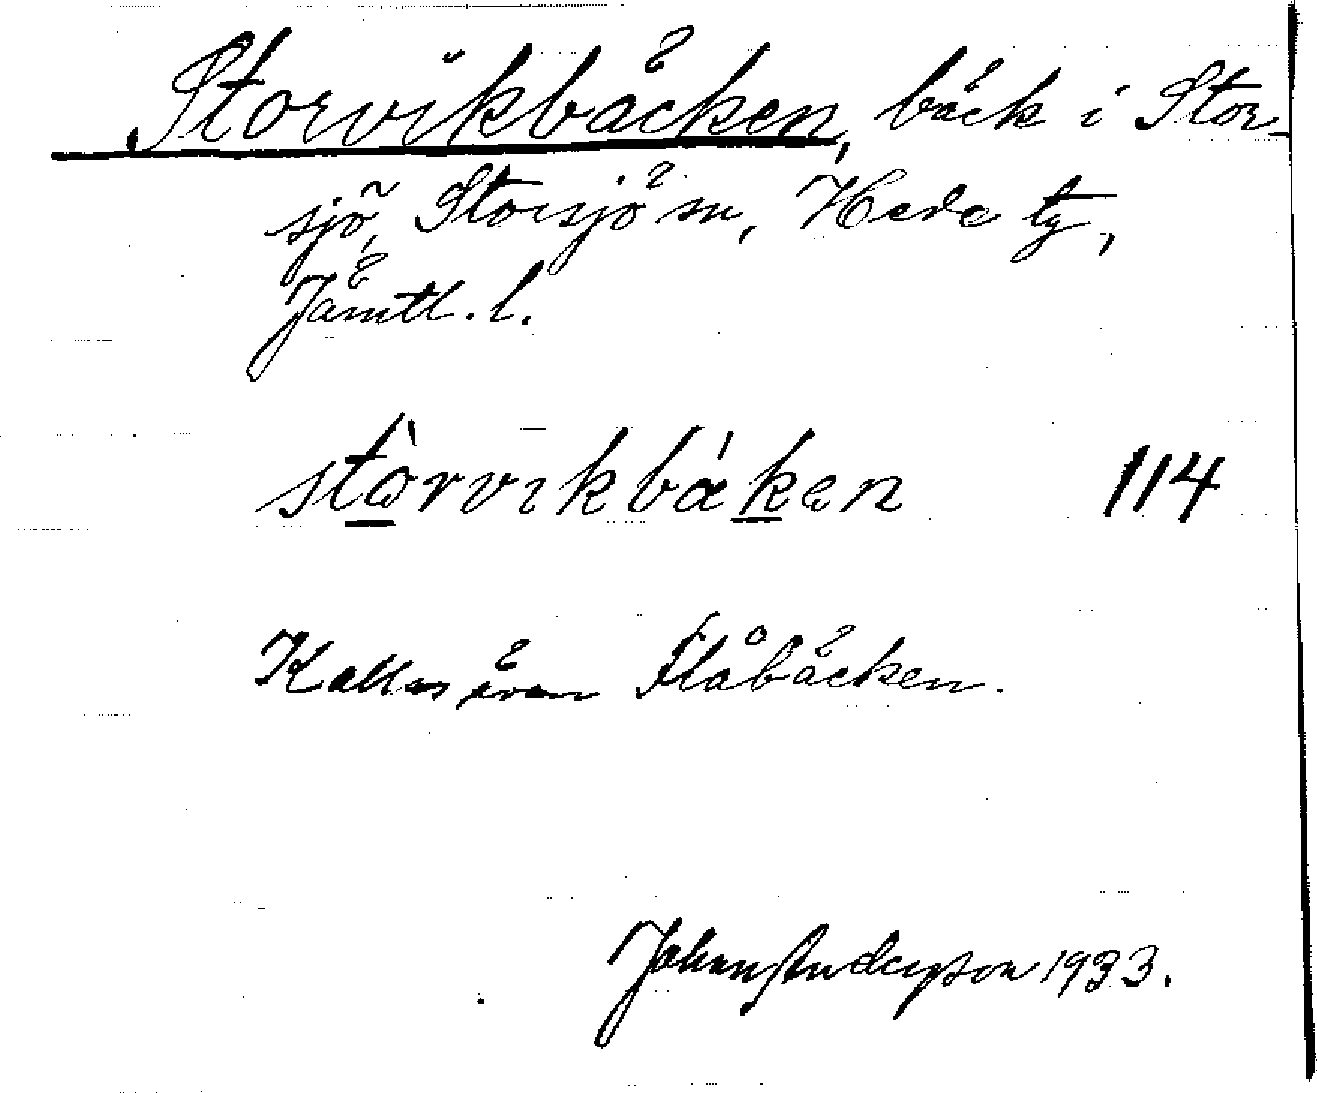 Storvikbäcken, bäck i Stor-
sjö, Storsjö sn, Hede tg,
Jämtl. l.
stòrvıkbákan 114
Kallas även Flåbäcken.
Johan Anderzon 1933.